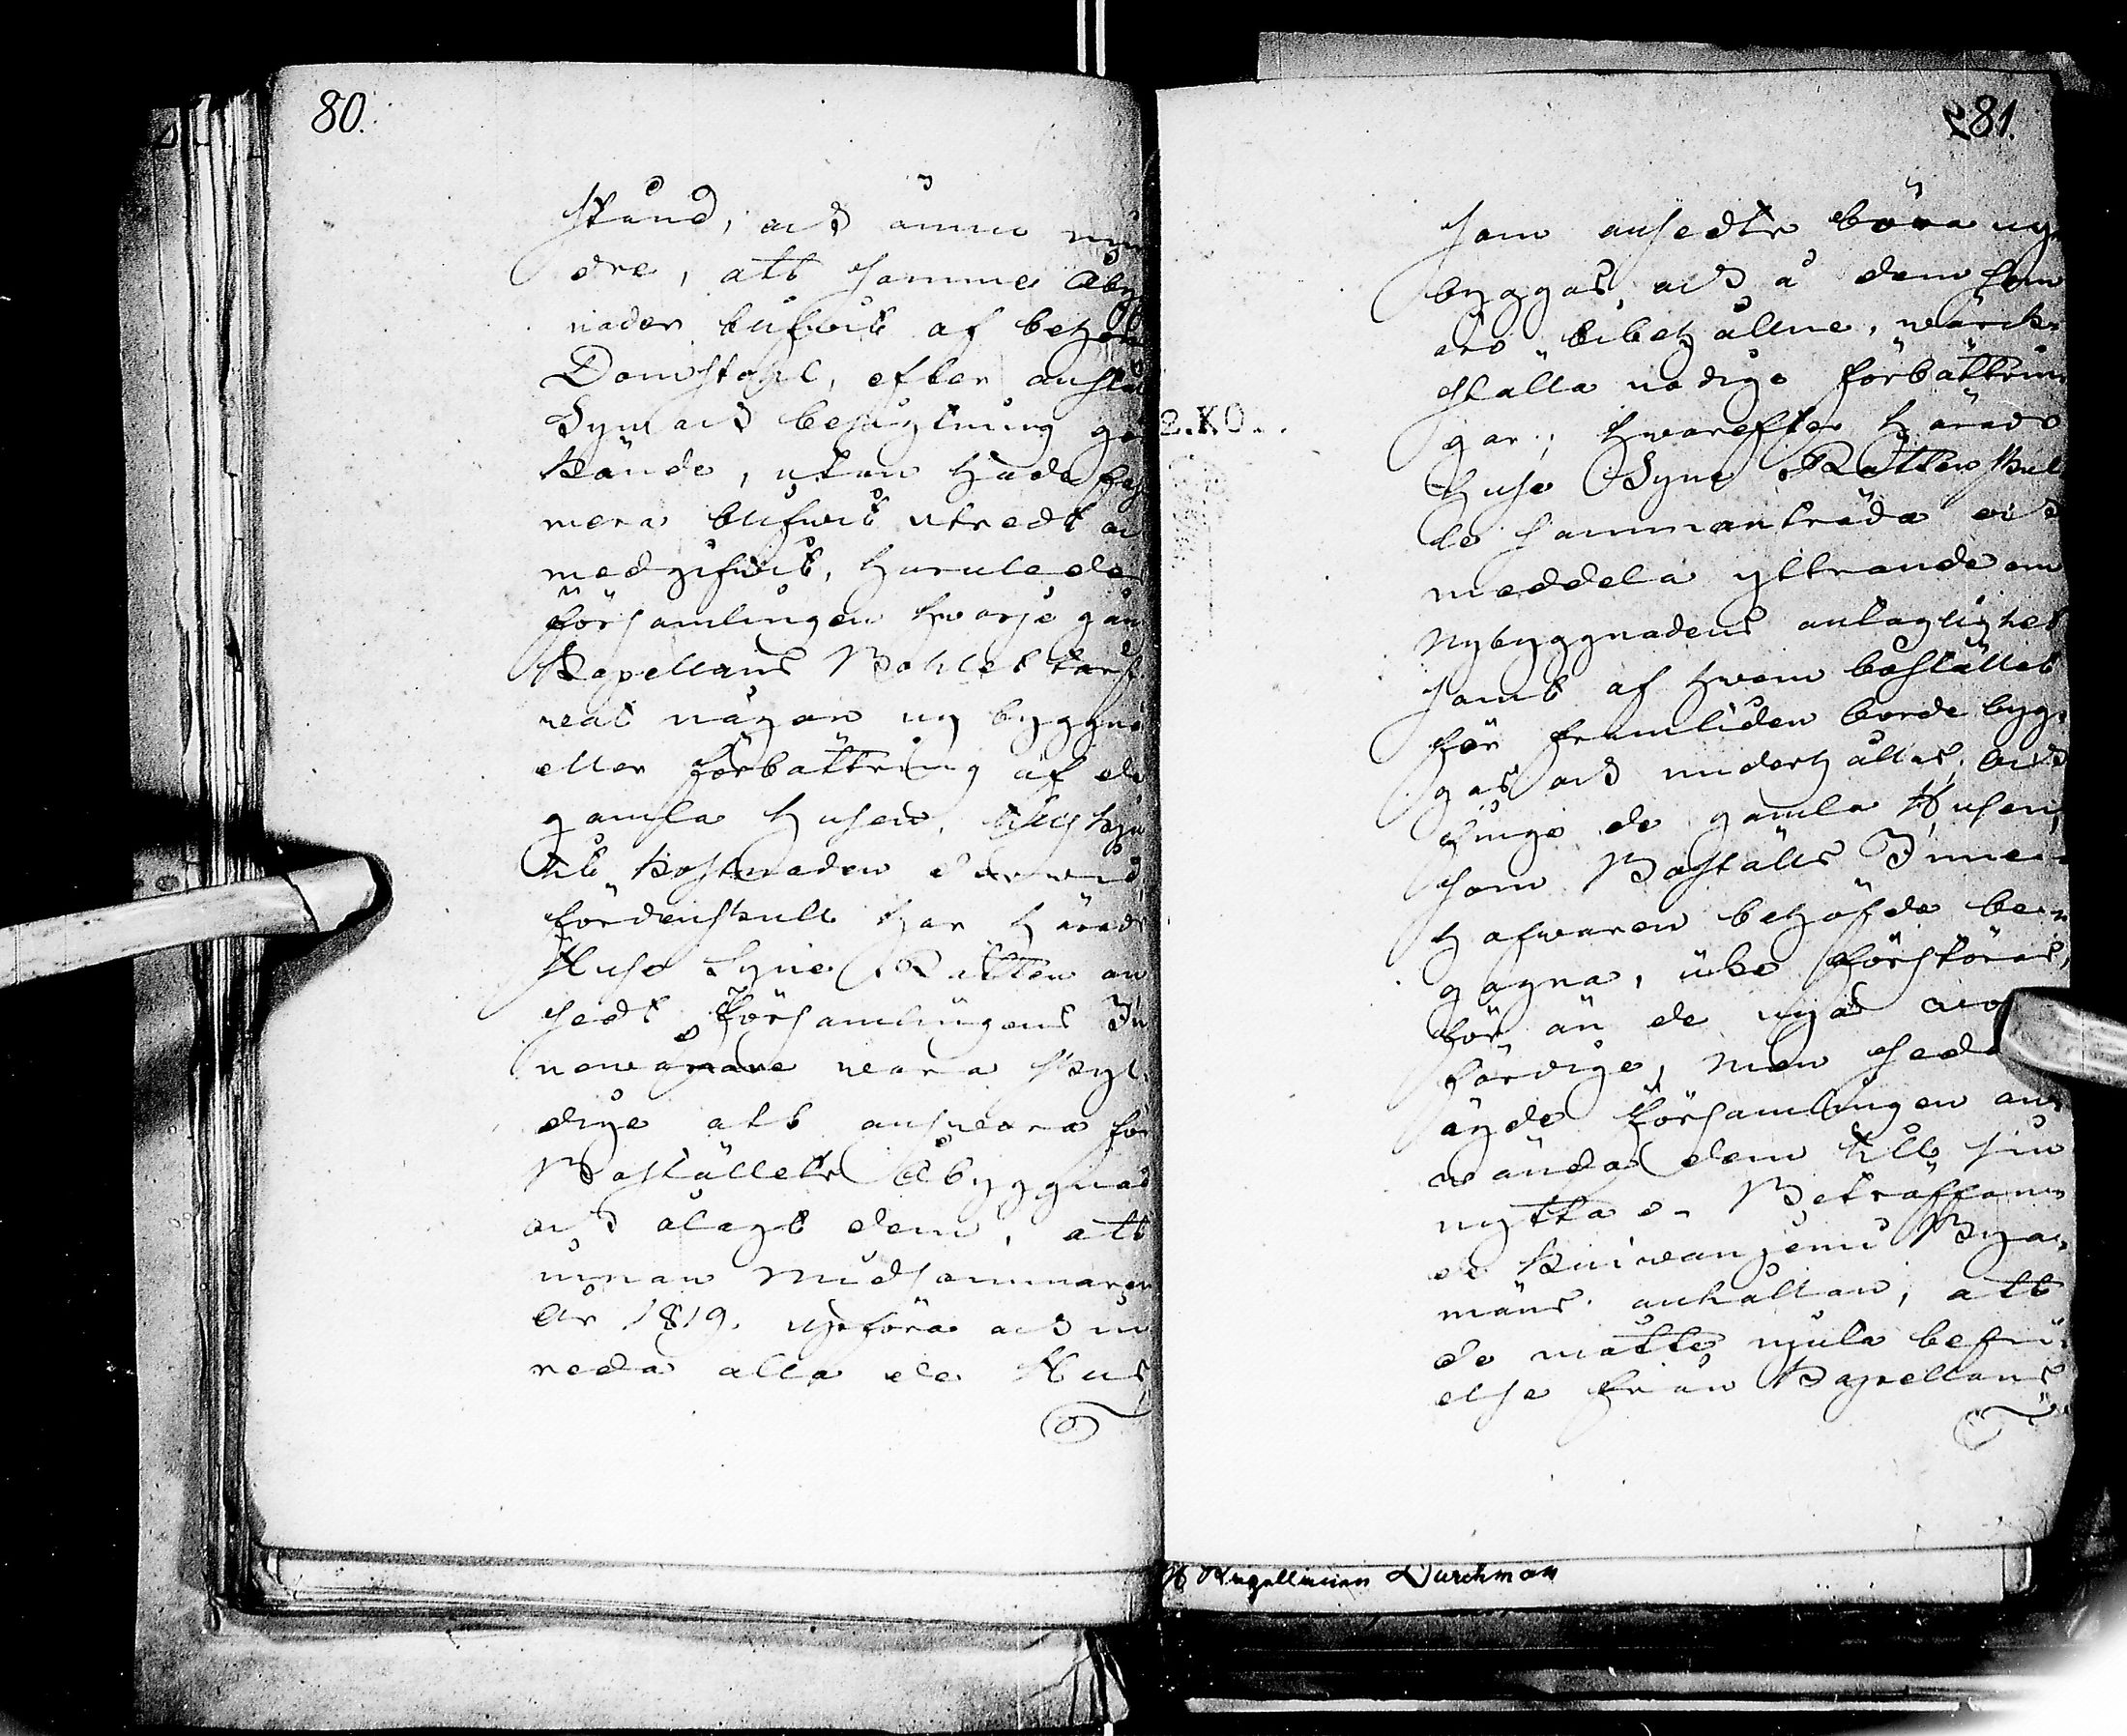 80.
stånd, och ännu min
dre, att samme Åbyg
nader blifvit af behörig
Domstohl, efter anstäld
Syn och besigtning god
kände, utan hade fast
mera blifvit utredt och
medgifvit, huruledes
församlingen hvarje gång
Kapellans Bohlet tarf
veat någon ny byggnad
eller förbättring af de
gamla husen, tillskju
tit kostnaden dervid,
fördenskull har Härads
Huse Syne Rätten an
sedt församlingens In
nevånare vara skyl
dige att ansvara för
Boställets Åbyggnad
och ålagt dem, att
innan Midsommaren
År 1819. upföra och in
reda alla de Hus
281.
som ansedts böra ny
byggas, och å dem som
äro bibehållne, värk
ställa nödige förbättrin
gar; hvarefter Härads
Huse Syne Rätten skul
le sammanträda och
meddela yttrande om
Nybyggnadens antaglighet
samt af hvem bostället
för framtiden borde byg
gas och underhållas, Och
finge de gamla Husen,
som Boställs Inne
hafvaren behöfde be
gagna, icke förstöras,
förr än de nya
färdige, men
ägde församlingen an
vända dem till sin
nytta. Beträffan
de Kuivangemi Bya
mäns anhållan, att
de måtte njuta befri
else från Kapellans
2.KO.
Kapellanen Durchman